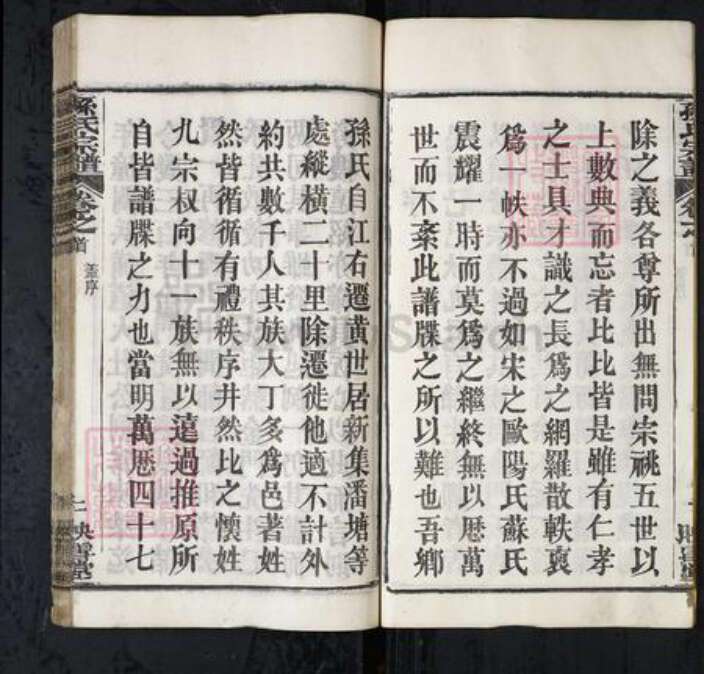 除之義各尊所出無問宗祧五世以
上數典而忘者比比皆是雖有仁孝
之士具才識之長為之網羅散軼裒
為一帙亦不過如宋之歐陽氏蘇氏
震耀一時而莫為之繼終無以歷萬
世而不紊此譜牒之所以難也吾鄉
孫氏自江右遷黃世居新集潘塘等
處縱橫二十里除遷徙他適不計外
約共數千人其族大丁多為邑著姓
然皆循循有禮秩序井然比之懷姓
九宗叔向十一族無以遠過推原所
自皆譜牒之力也當明萬歷四十七
孫氏宗譜
卷之首
蓋序
映雪堂